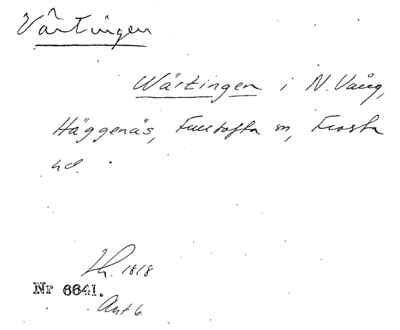 Värtingen
Wärtingen i N. Vång,
Häggenäs, Fulltofta sn, Frosta
hd.
Lh. 1818
Nr 6641.
Avt 6.